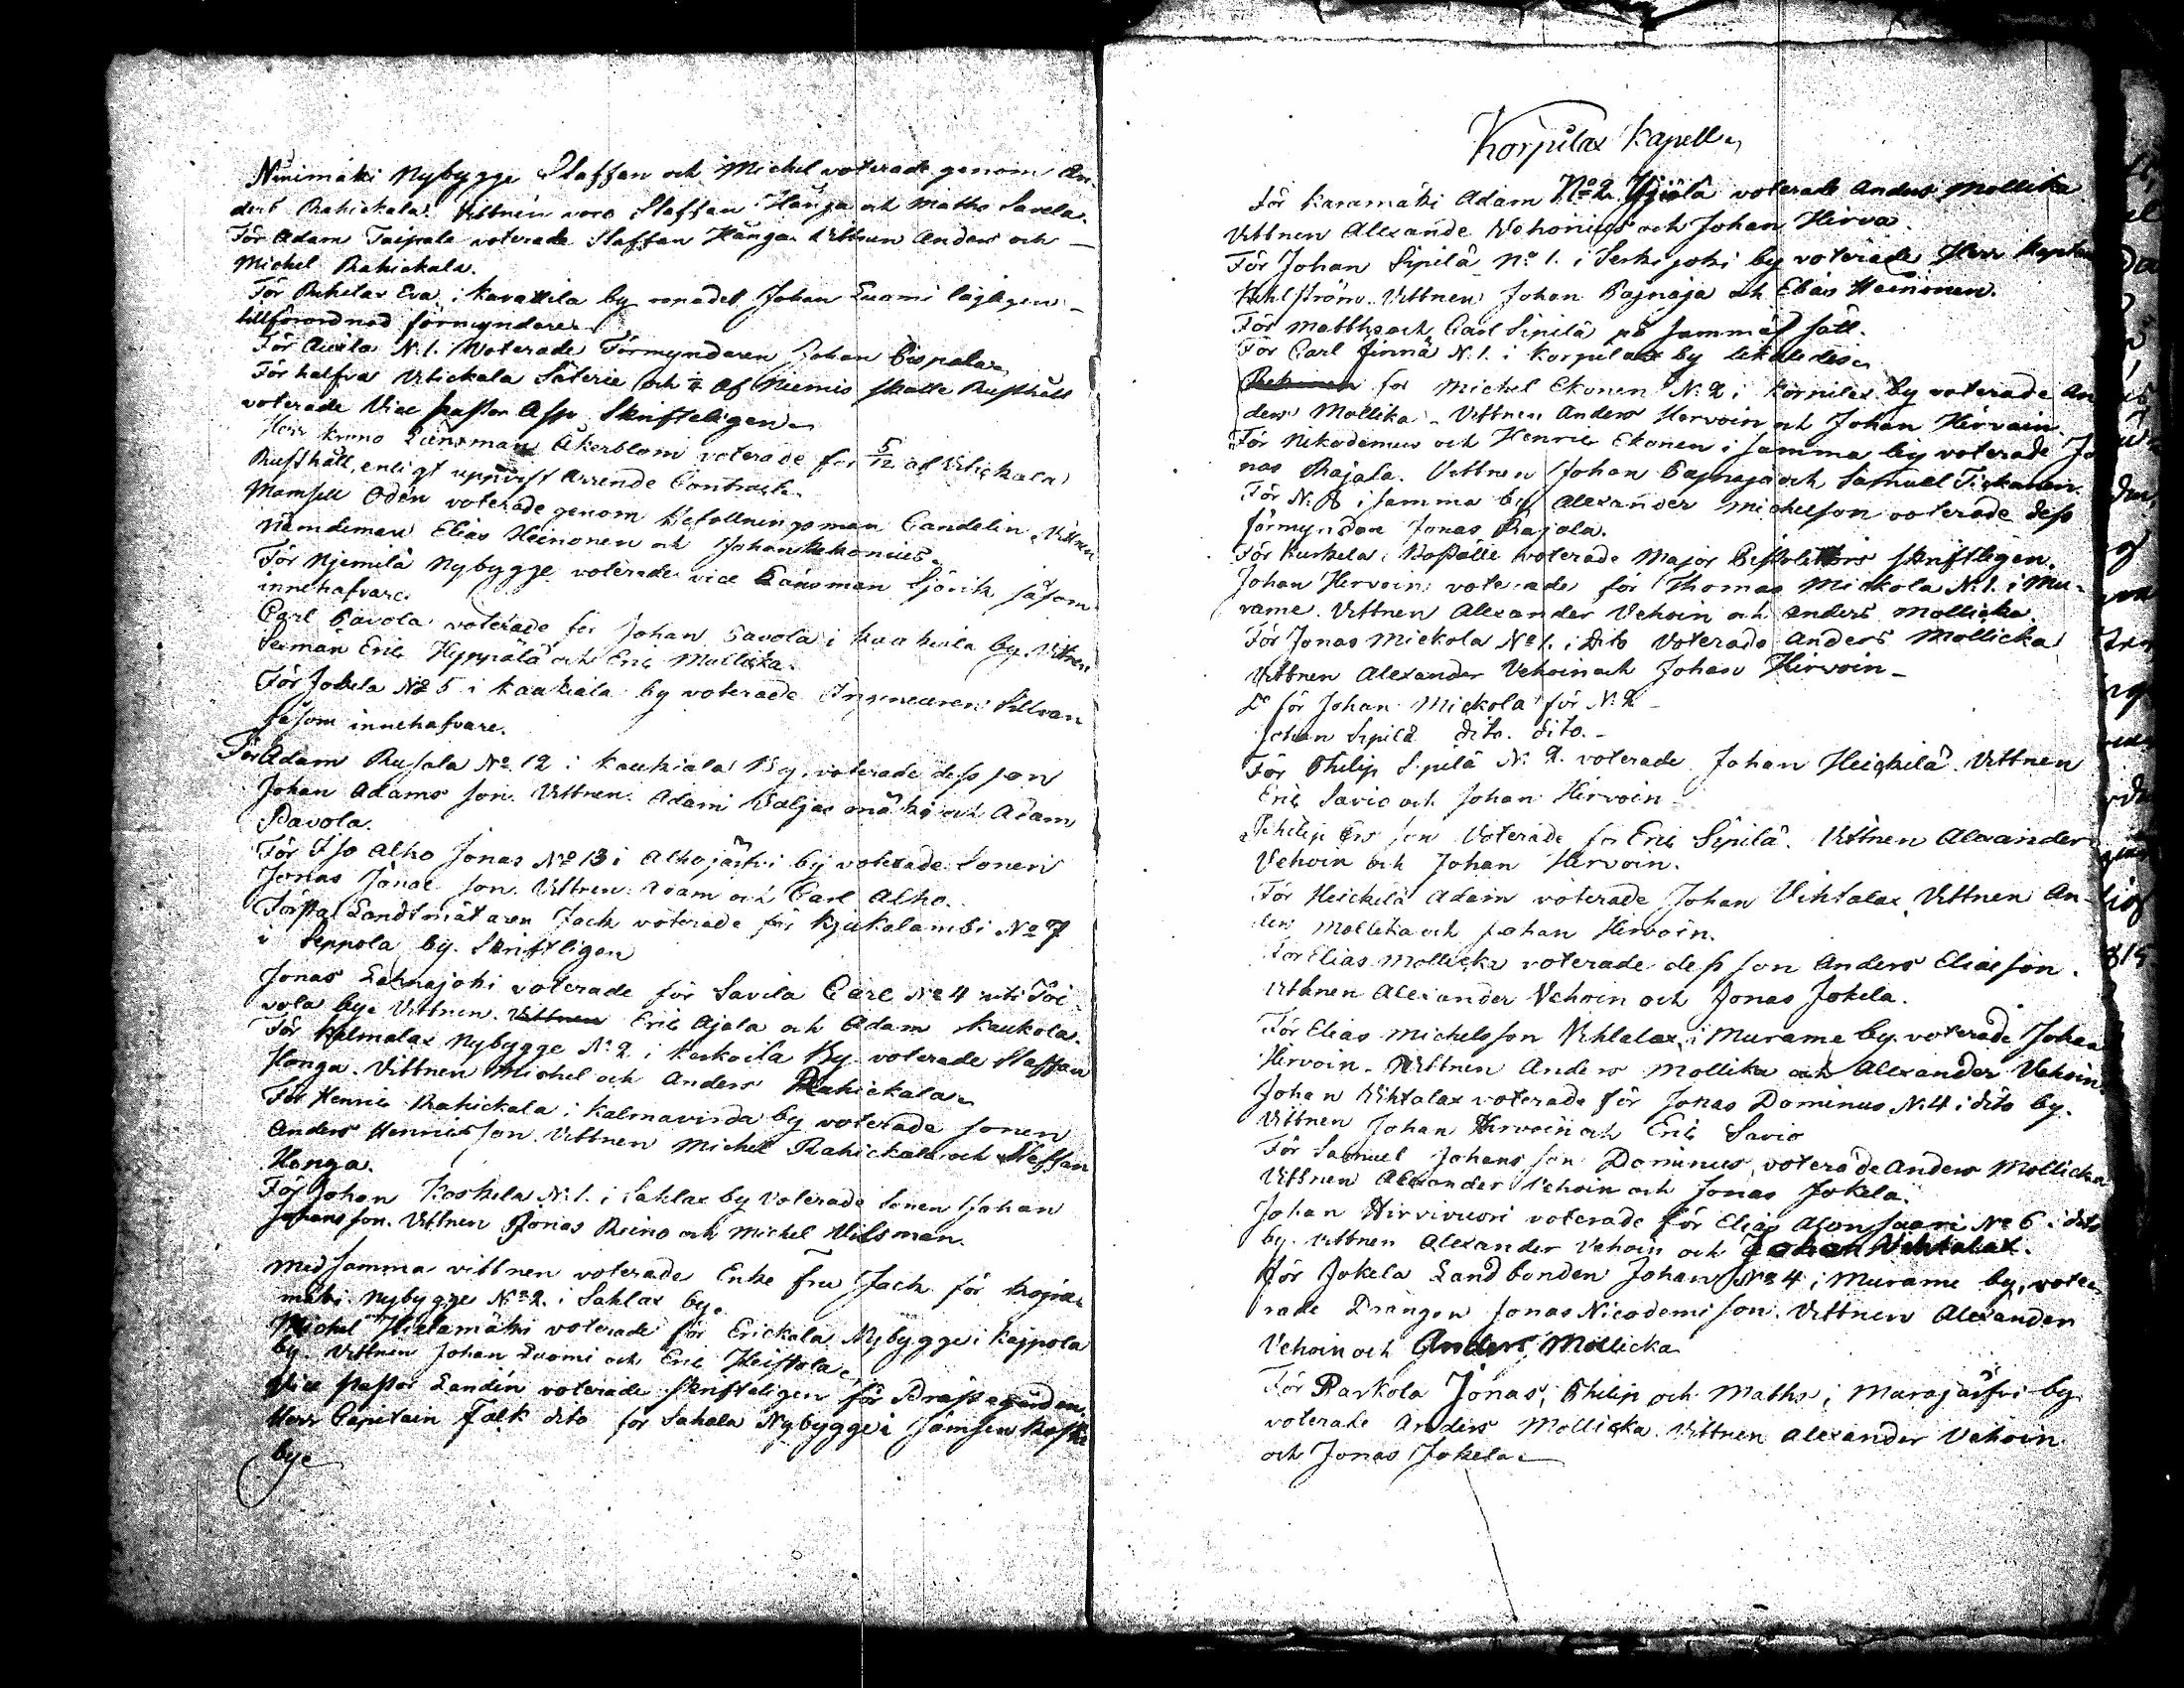 Ninimäki Nybygge Staffan och Michel voterade genom An-
ders Rahickala. Vittnen voro Staffan Hånga och Maths Savela.
För Adam Taipale voterade Staffan Hånga. Vittnen Anders och
Michel Rahickala.
För Eva i Kavattila by Johan Luomi lagligen
tillförordnad förmyndare
För Auvila N:1. Voterade Förmyndaren Johan Cispala
För halfva Vitickala Säterie och af Niemis skatte Rusthåll
voterade Vice pastor Asp Skrifteligen
Herr krono Länsman Åkerblom voterade for 5/12 af Vitickala
Rusthåll, enligt uppvist Arrende Contract.
Mamsell Odén voterade genom Befallningsman Candelin. Vittnen
Nämdeman Elias Heinonen och Johan
För Njemilä Nybygge voterade vice Länsman Sjövik såsom
innehafvare
Carl Pavola voterade for Johan Pavola i kaukiala by. Vittnen
Seeman Eric Hyppälä och Eric Mallicka.
För Jokela No 5 i Kaukiala by voterade Ingenieuren Silvan
såsom innehafvare.
För Adam Rusala No 12 i Kaukiala By, voterade dess son
Johan Adams son. Vittnen. Adam och Adam
Pavola.
För Iso Alho Jonas No 13 i Alhojärfvi by voterade Sonen
Jonas Jonae son. Vittnen. Adam och Carl Alho.
Första Landtmätaren Jack voterade för Kjukalambi No 7
i Seppola by. Skriftligen
Jonas Lehnajoki voterade för Savila Carl No 4 uti Toi-
vola by. Vittnen. Vittnen Eric Ajala och Adam Kaukola.
För Kalmalax Nybygge No 2 i Keskoila By voterade Staffan
Honga. Vittnen Michel och Anders Rahickala
För Henric Rahickala i Kalmavirda by voterade sonen
Anders Henricsson. Vittnen Michel Rahickala och Staffan
Honga.
För Johan Koskela N:1. i Sahlax by voterade Sonen Johan
Johansson. Vittnen Jonas Reino och Michel Vilsman.
Med samma vittnen voterade Enke fru Jack för
mäki nybygge No 2. i Sahlax by.
Michel Hietamäki voterade för Erickala Nybygge i Kappola
by. Vittnen Johan Luomi och Eric Heiskala
Vice pastor Landén voterade skrifteligen för Prästegården.
Herr Capitain Falk dito för Sahala Nybygge i Jämsen koski
by
Korpilax Kapell
För Karamäki Adam No 2. voterade Anders Mollika
Vittnen Alexander Vehonius och Johan Hirva.
För Johan Sipilä No 1. i Serkijoki by voterade Herr Kapten
Kihlström. Vittnen Johan Pajnaja och Elias Heinonen.
För Matths och Carl Sipilä på samma sätt.
För Carl Jinnä N:1. i Korpulax by likaledes
for Michel Ekonen N:2 i Korpilax by voterade An
ders Mollika. Vittnen Anders Hervoin och Johan Hirvoin.
För Nikodemus och Henric Ekonen i samma by voterade Jo
nas Rajala. Vittnen Johan Pajnaja och Samuel Tickanen.
För N: 8 i samma by Alexander Michelson voterade dess
förmyndare Jonas Rajala.
För Kurkela Boställe voterade Major skriftligen.
Johan Hervoin voterade för Thomas Mickola N:1. i Mu-
rame. Vittnen Alexander Vehoin och Anders Mollicka
För Jonas Mickola No 1. i dito Voterade Anders Mollicka
Vittnen Alexander Vehoin och Johan Hirvoin
Do för Johan Mickola för N:2
Johan Sipilä dito. dito.
För Philip Sipilä N:2. voterade Johan Heickilä. Vittnen
Eric Savio och Johan Hirvoin
Philip Ers son Voterade för Eric Sipilä. Vittnen Alexander
Vehoin och Johan Hervoin.
För Heickilä Adam voterade Johan Vihtalax. Vittnen An-
ders Mollika och Johan Hirvoin.
För Elias Mollicka voterade dess son Anders Eliæson.
Vittnen Alexander Vehoin och Jonas Jokela.
För Elias Michelsson Vihtalax i Murame by voterade Johan
Hirvoin. Vittnen Anders Mollika och Alexander Vehoin
Johan Vihtalax voterade för Jonas Dominus N:4 i dito by.
Vittnen Johan Hirvoin och Eric Savio
För Samuel Johans son Dominus, voterade Anders Mollicka
Vittnen Alexander Vehoin och Jonas Jokela.
Johan Hirvivuori voterade för Elias No 6 i dito
by. Vittnen Alexander Vehoin och Johan Vihtalax.
För Jokela Landbonden Johan No 4 i Murame by, vote-
rade Drängen Jonas Nicodemi son. Vittnen Alexander
Vehoin och Anders Mollicka
För Parkola Jonas, Philip och Maths, i Murajärfvi by
voterade Anders Mollicka. Vittnen Alexander Vehoin
och Jonas Jokela